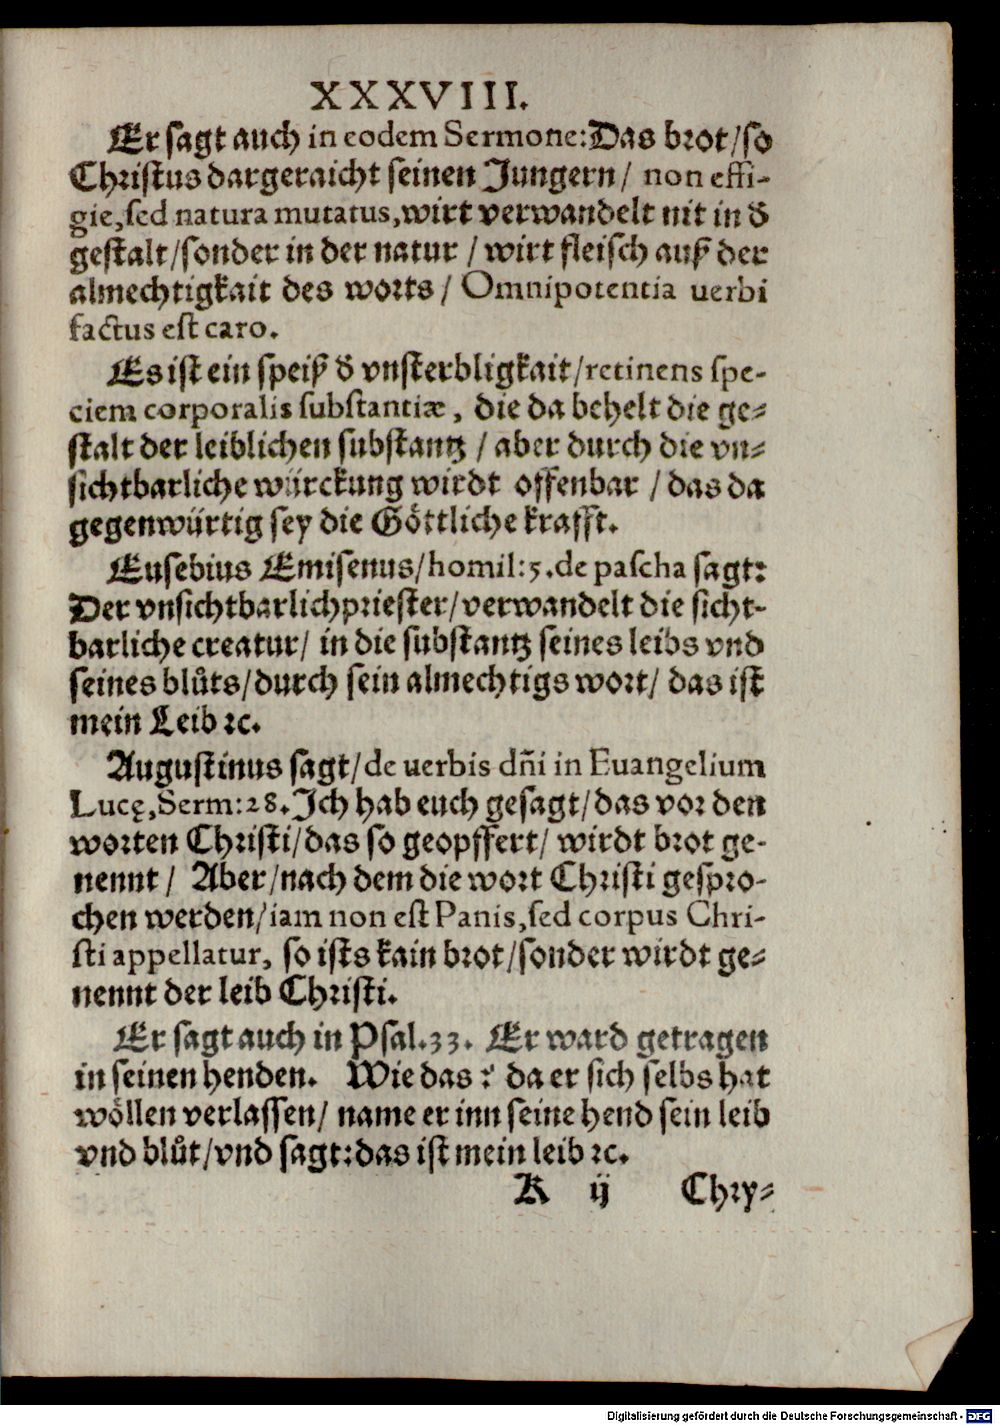 XXXVIII.
Er sagt auch in eodem Sermone: Das brot/so
Christus dargeraicht seinen Jungern/ non effi-
gie, sed natura mutatus, wirt verwandelt nit in d̕
gestalt/sonder in der natur / wirt fleisch auß der
almechtigkait des worts/ Omnipotentia uerbi
factus est caro.
Es ist ein speiß d̕ vnsterbligkait/retinens spe-
ciem corporalis substantiæ, die da behelt die ge-
stalt der leiblichen substantz / aber durch die vn-
sichtbarliche würckung wirdt offenbar / das da
gegenwürtig sey die Göttliche krafft.
Eusebius Emisenus/homil: 5. de pascha sagt:
Der vnsichtbarlich priester/verwandelt die sicht-
barliche creatur/ in die substantz seines leibs vnd
seines blůts/durch sein almechtigs wort/ das ist
mein Leib ꝛc.
Augustinus sagt/de uerbis dñi in Euangelium
Lucę, Serm: 28. Ich hab euch gesagt/das vor den
worten Christi/das so geopffert/ wirdt brot ge-
nennt/ Aber/nach dem die wort Christi gespro-
chen werden/iam non est Panis, sed corpus Chri-
sti appellatur, so ists kain brot/sonder wirdt ge-
nennt der leib Christi.
Er sagt auch in Psal. 33. Er ward getragen
in seinen henden. Wie das? da er sich selbs hat
wöllen verlassen/ name er inn seine hend sein leib
vnd blůt/vnd sagt: das ist mein leib ꝛc.
K ij Chry-
Digitalisierung gefördert durch die Deutsche Forschungsgemeinschaft - DFG